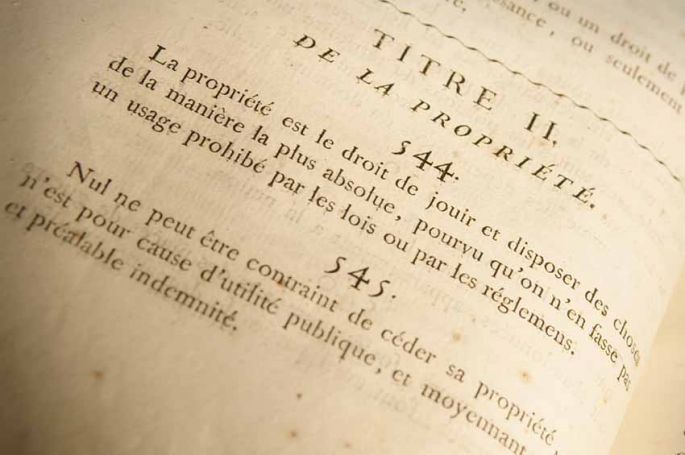 ou un droit de
ou seulement
TITRE II.
DE LA PROPRIÉTÉ.
544.
La propriété est le droit de jouir et disposer des choses
de la manière la plus absolue, pourvu qu'on n'en fasse pas
un usage prohibé par les lois ou par les réglemens.
545.
Nul ne peut être contraint de céder sa propriété,
n'est pour cause d'utilité publique, et moyennant
et préalable indemnité.